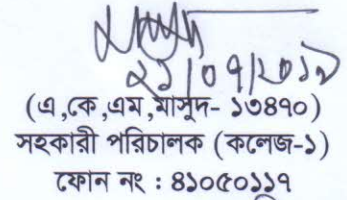 ২১/০৭/২০১৯
(এ,কে,এম,মাসুদ- ১৩৪৭০)
সহকারী পরিচালক (কলেজ-১)
ফোন নং : ৪১০৫০১১৭